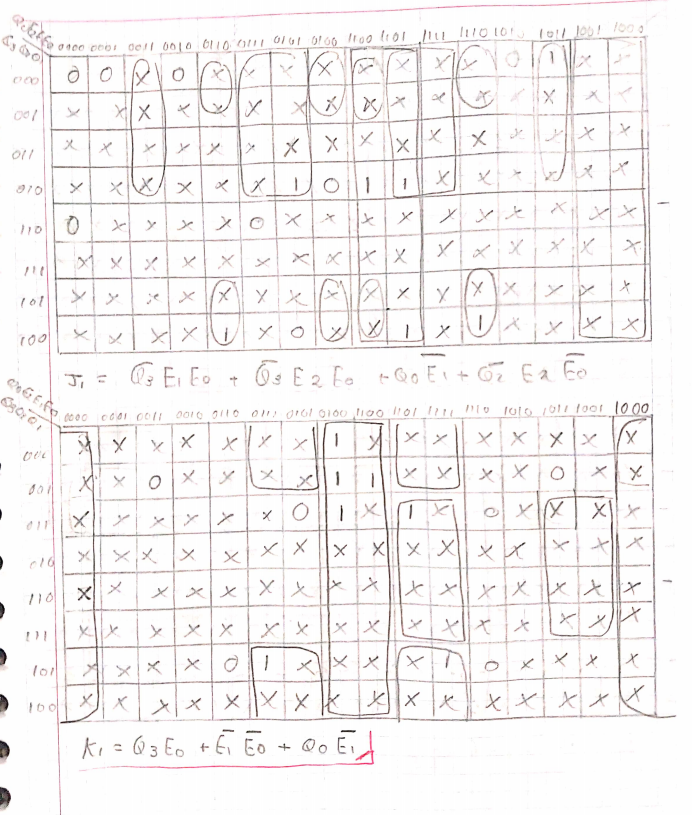 0000 0001 0011 0010 0110 0111 0101 0100 1100 1101 1111 1110 1010 1011 1001 1000
000 0 0 x 0 x x x x x x x x 0 1 x x
001 x x x x x x x x x x x x x x x x
011 x x x x x x x x x x x x x x x x
010 x x x x x x 1 0 1 1 x x x x x x
110 0 x x x x 0 x x x x x x x x x x
111 x x x x x x x x x x x x x x x x
101 x x x x x x x x x x x x x x x x
100 x x x x 1 x 0 x x 1 x 1 x x x x
J₁ = Q̅₃ E₁ E₀ + Q̅₃ E₂ E₀ + Q₀ E̅₁ + Q̅₂ E₂ E̅₀
0000 0001 0011 0010 0110 0111 0101 0100 1100 1101 1111 1110 1010 1011 1001 1000
000 x x x x x x x 1 x x x x x x x x
001 x x 0 x x x x 1 1 x x x x 0 x x
011 x x x x x x 0 1 x 1 x 0 x x x x
010 x x x x x x x x x x x x x x x x
110 x x x x x x x x x x x x x x x x
111 x x x x x x x x x x x x x x x x
101 x x x x 0 1 x x x x 1 0 x x x x
100 x x x x x x x x x x x x x x x x
K₁ = Q₃ E₀ + E̅₁ E̅₀ + Q₀ E̅₁